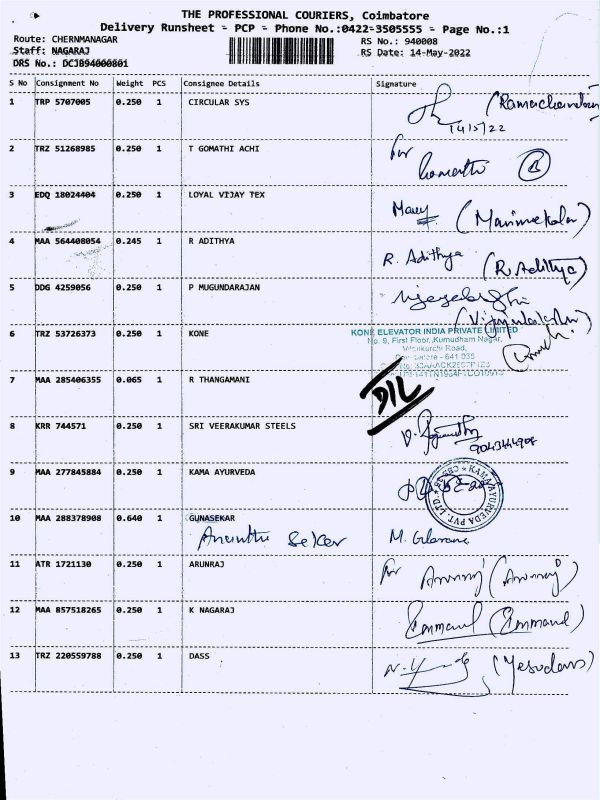 THE PROFESSIONAL COURIERS, Coimbatore
Delivery Runsheet - PCP - Phone No.:0422-3505555 - Page No.:1
Route: CHERNMANAGAR
RS No.: 940008
Staff: NAGARAJ
RS Date: 14-May-2022
DRS No.: DCJB94000801
S No Consignment No Weight PCS Consignee Details Signature
1 TRP 5707005 0.250 1 CIRCULAR SYS (Ramachandran
14/5/22
2 TRZ 51268985 0.250 1 T GOMATHI ACHI for
3 EDQ 18024404 0.250 1 LOYAL VIJAY TEX Mary (Manimekalai)
4 MAA 564408054 0.245 1 R ADITHYA R. Adithya (R.Adithya)
5 DDG 4259056 0.250 1 P MUGUNDARAJAN
(Vijayalakshmi)
6 TRZ 53726373 0.250 1 KONE KONE ELEVATOR INDIA PRIVATE LIMITED
No. 9, First Floor, Kumudham Nagar,
Road,
- 641 035
7 MAA 285406355 0.065 1 R THANGAMANI D/L
8 KRR 744571 0.250 1 SRI VEERAKUMAR STEELS
9 MAA 277845884 0.250 1 KAMA AYURVEDA KAMA AYURVEDA PVT. LTD.
10 MAA 288378908 0.640 1 GUNASEKAR
Sekar M.
11 ATR 1721130 0.250 1 ARUNRAJ for Arunraj (Arunraj)
12 MAA 857518265 0.250 1 K NAGARAJ Emmanuel (Emmanuel)
13 TRZ 220559788 0.250 1 DASS (Yesudass)